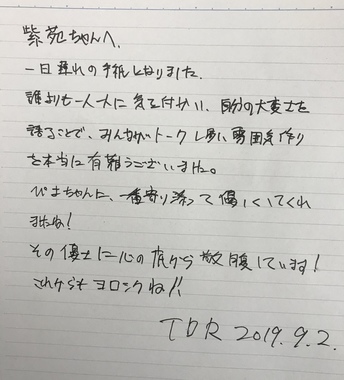 紫苑ちゃんへ、
一日遅れの手紙となりました。
誰よりも一人一人に気を付かい、自分の大変さを
語ることで、みんながトークし易い雰囲気作り
を本当に有難うございました。
ぴよちゃんに、一番寄り添って優しくしてくれ
ましたね!
その優しさに心の底から敬服しています!
これからもヨロシクね!!
TDR 2019.9.2.